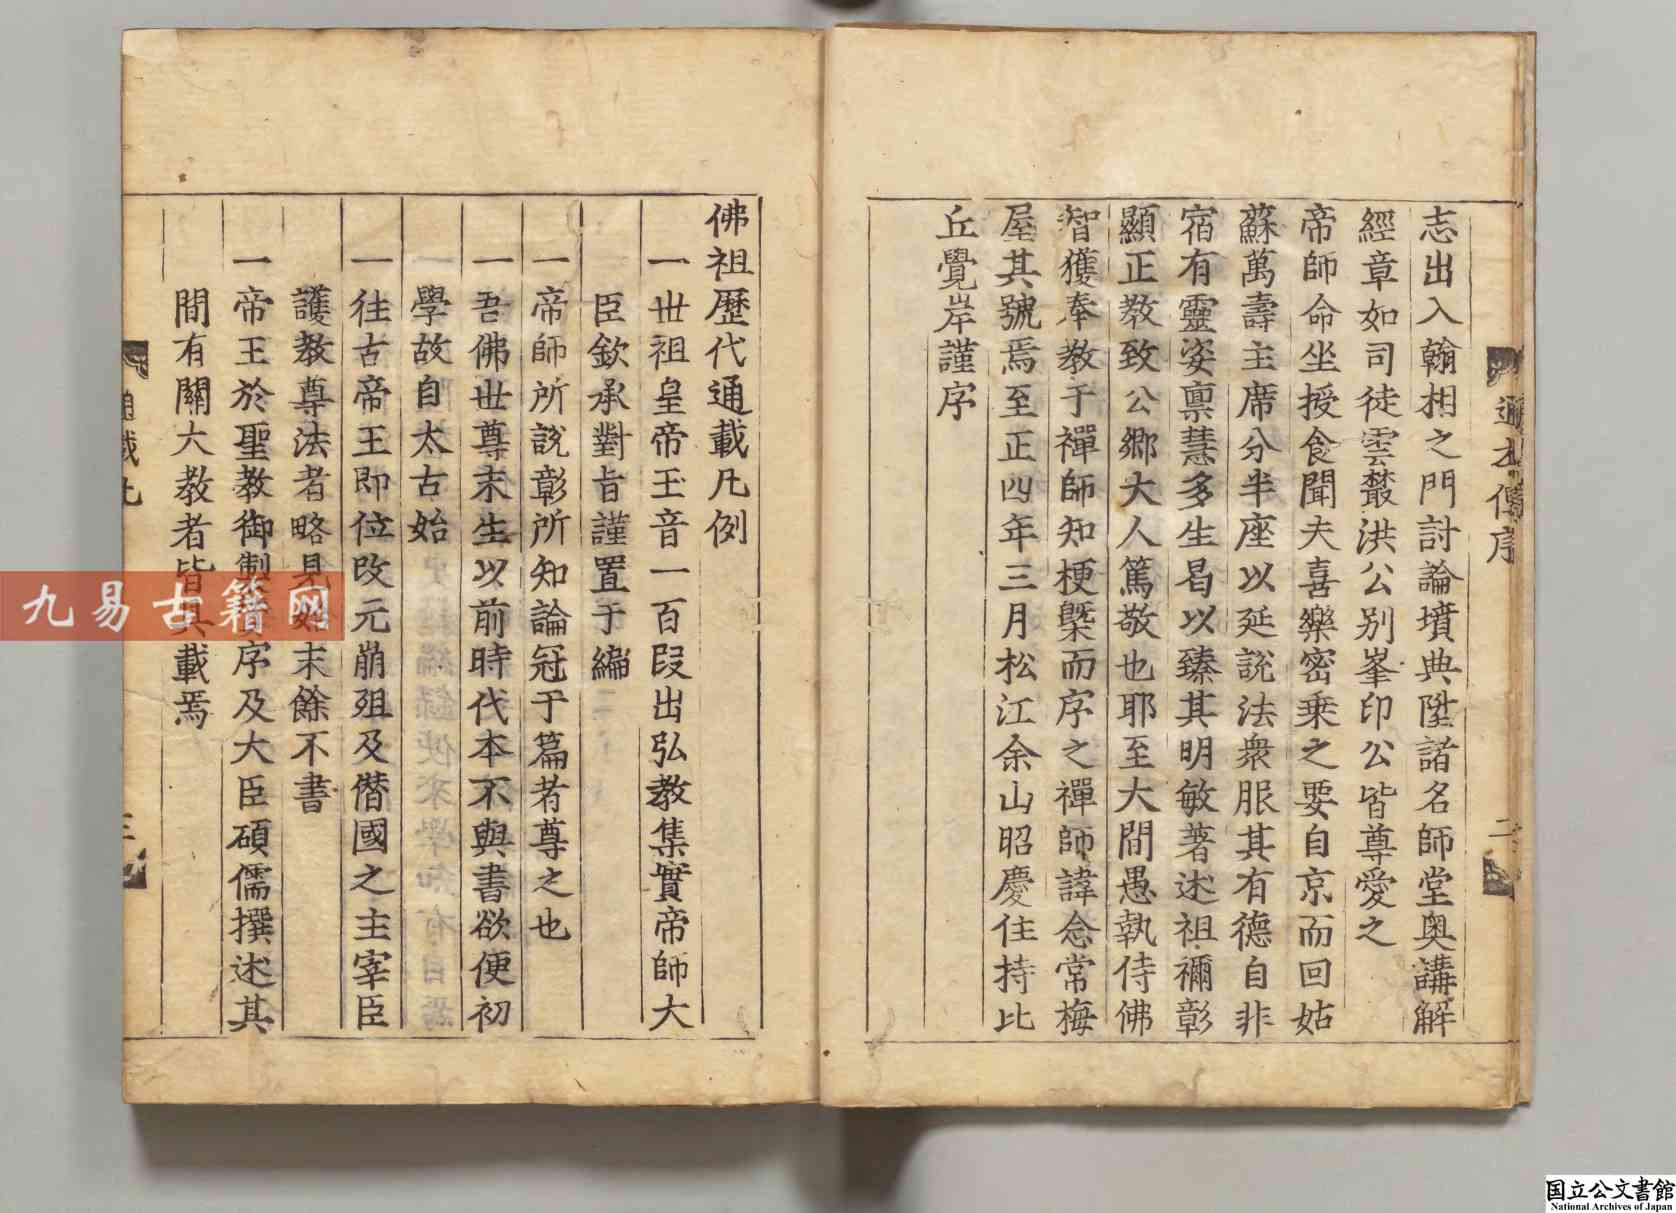 志出入翰相之門討論墳典陞諸名師堂奥講解
經章如司徒雲麓洪公别峯印公皆尊愛之
帝師命坐授食聞夫喜樂密乗之要自京而回姑
蘇萬壽主席分半座以延說法衆服其有德自非
宿有靈姿禀慧多生曷以臻其明敏著述祖禰彰
顯正教致公郷大人篤敬也耶至大間愚執侍佛
智獲奉教于禪師知梗槩而序之禪師諱念常梅
屋其號焉至正四年三月松江余山昭慶住持比
丘覺岸謹序
佛祖歷代通載凡例
一世祖皇帝玉音一百段出弘教集實帝師大
臣欽承對旨謹置于編
一帝師所説彰所知論冠于篇者尊之也
一吾佛世尊未生以前時代本不與書欲便初
學故自太古始
一往古帝王即位改元崩殂及僣國之主宰臣
護教尊法者略見始末餘不書
一帝王於聖教御製序及大臣碩儒撰述其
間有關大教者皆具載焉
九易古籍网
国立公文書館
National Archives of Japan